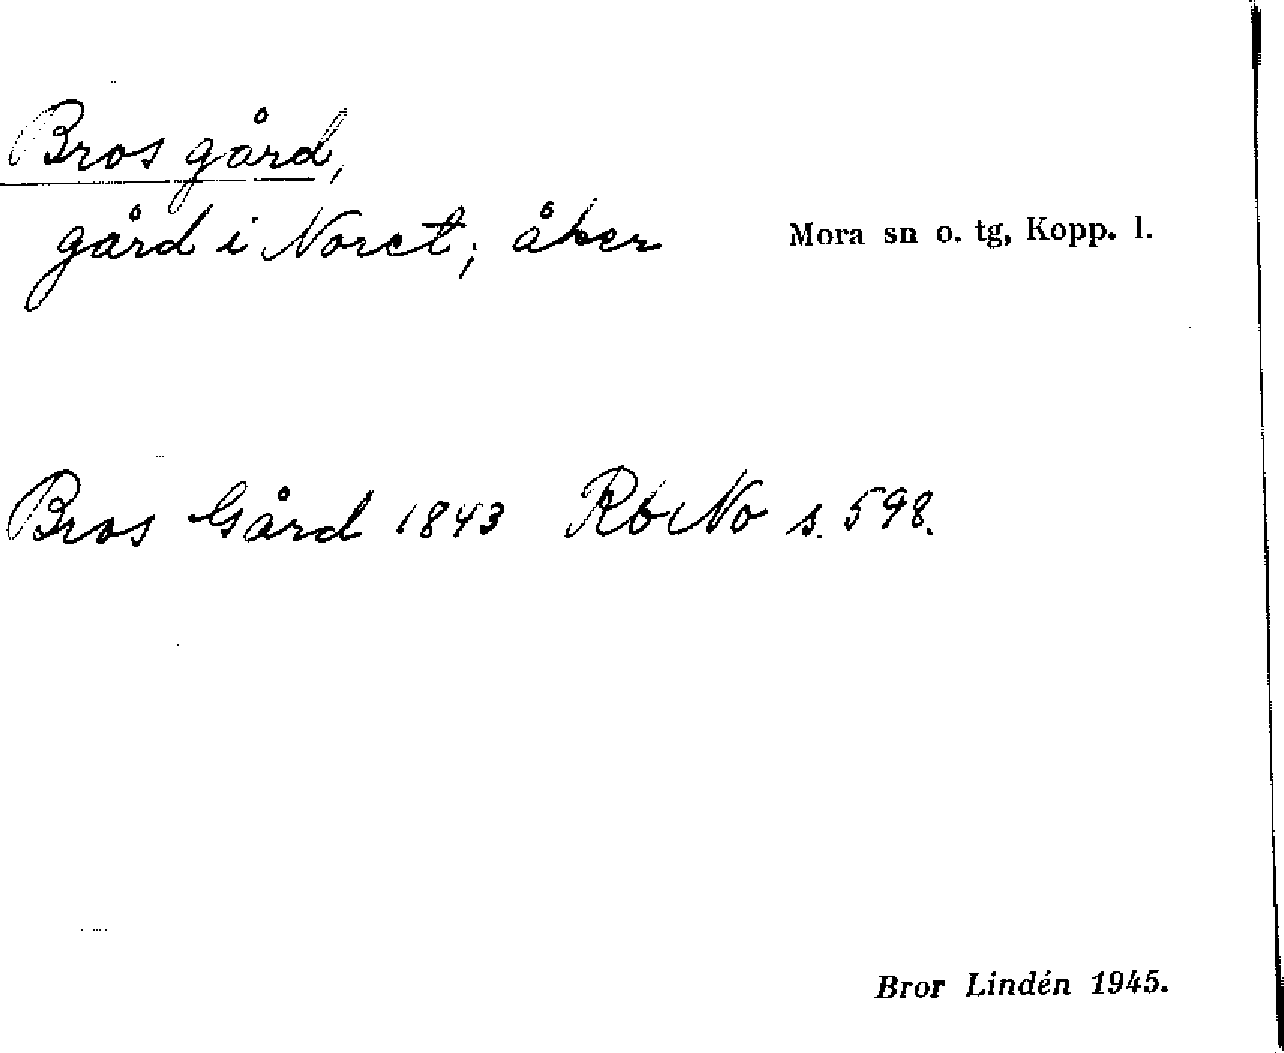 Bros gård,
gård i Noret; åker
Mora sn o. tg, Kopp. l.
Bros Gård 1843 RbNo s. 598.
Bror Lindén 1945.